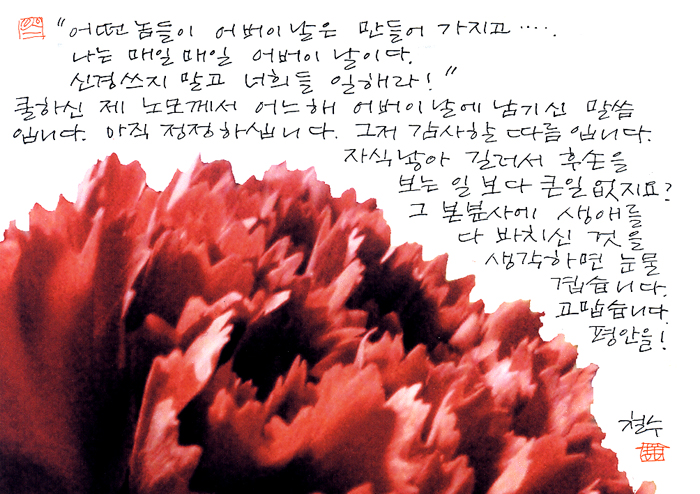 "어떤 놈들이 어버이날은 만들어 가지고 ‥‥.
나는 매일매일 어버이날이다.
신경쓰지 말고 너희들 일해라!"
쿨하신 제 노모께서 어느해 어버이날에 남기신 말씀
입니다. 아직 정정하십니다. 그저 감사할 따름입니다.
자식낳아 길러서 후손을
보는 일보다 큰일 없지요?
그 본분사에 생애를
다 바치신 것을
생각하면 눈물
겹습니다.
고맙습니다.
평안을!
철수